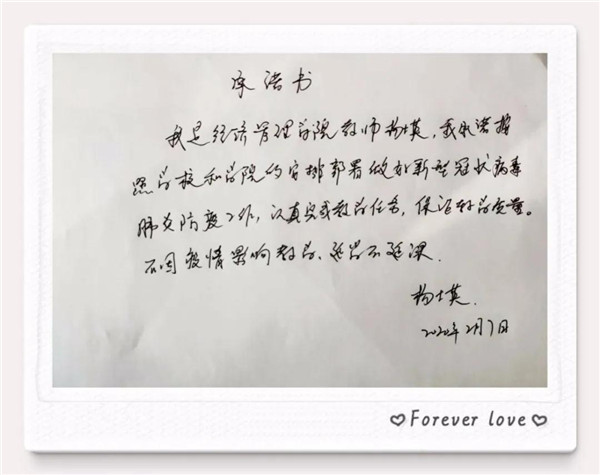 承诺书
我是经济管理学院教师杨士英,我承诺按
照学校和学院的安排部署做好新型冠状病毒
肺炎防疫工作,认真完成教学任务,保证教学质量。
不因疫情影响教学、延学不延课.
杨士英.
2020年2月7日
♡Forever love♡